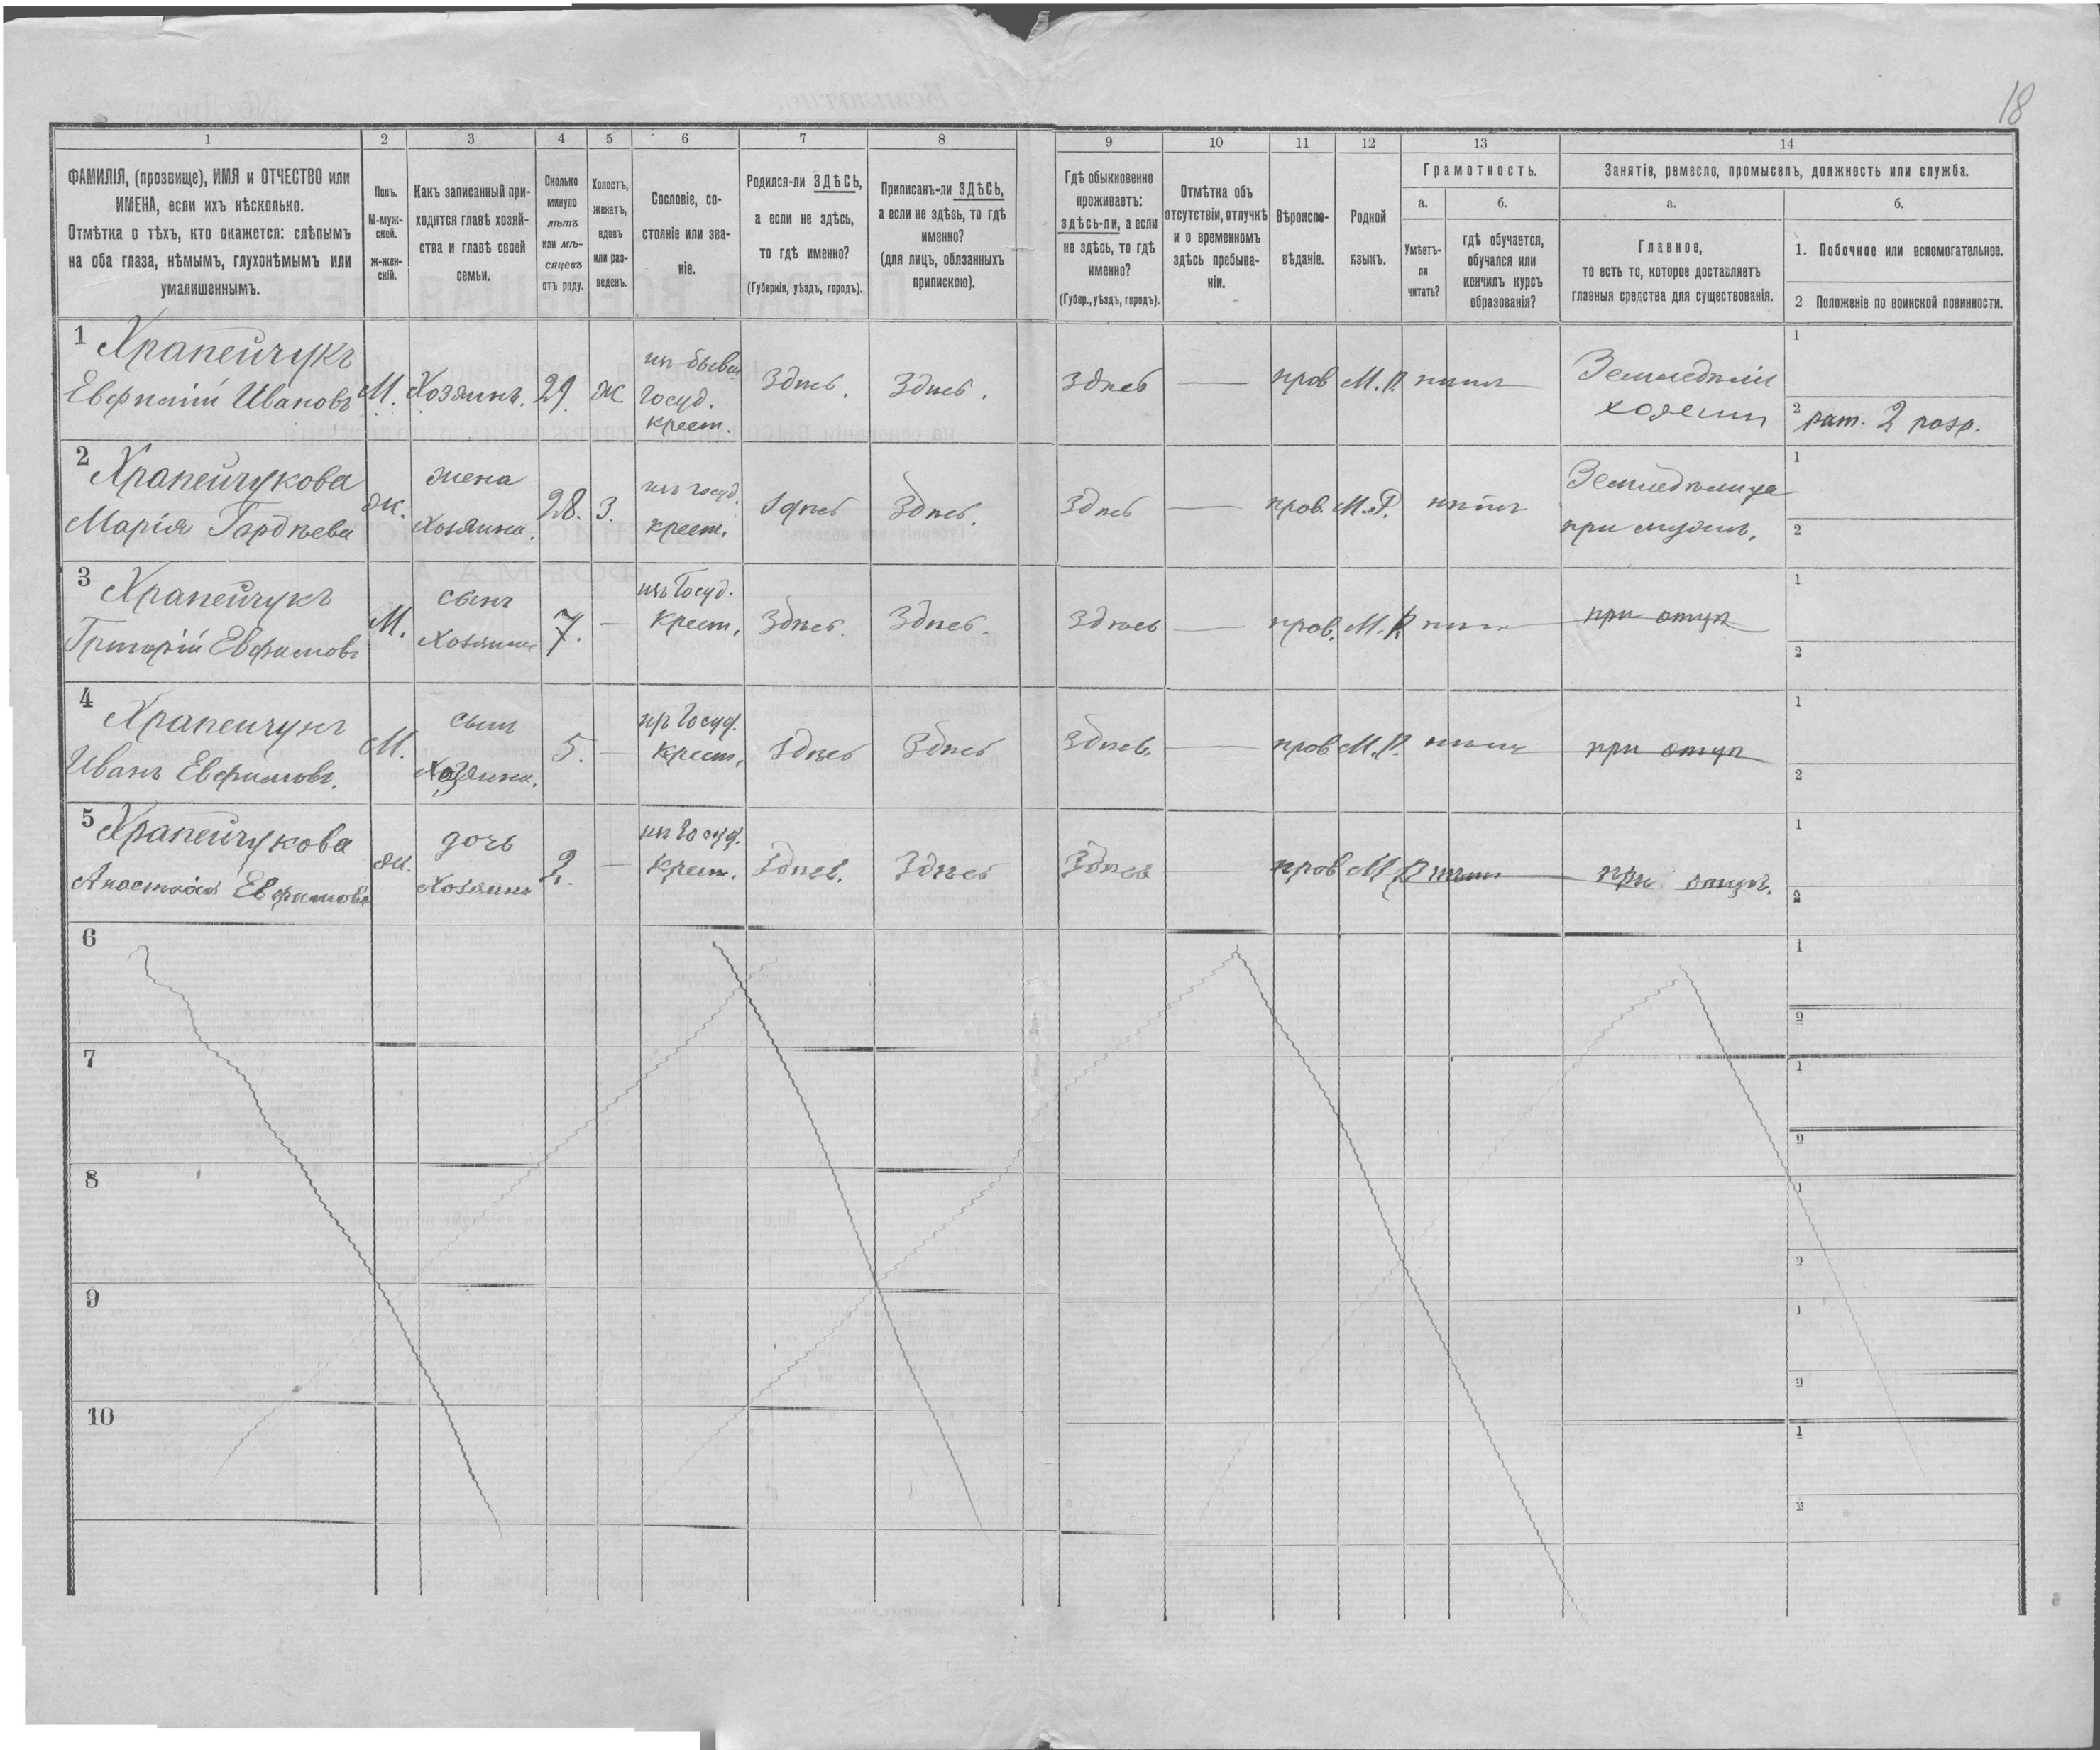 18
1
2
3
4
5
6
7
8
9
10
11
12
13
14
ФАМИЛІЯ, (прозвище), ИМЯ и ОТЧЕСТВО или
ИМЕНА, если ихъ нѣсколько.
Отмѣтка о тѣхъ, кто окажется: слѣпымъ
на оба глаза, нѣмымъ, глухонѣмымъ или
умалишеннымъ.
Полъ.
М-муж-
ской.
ж-жен-
скій.
Какъ записанный при-
ходится главѣ хозяй-
ства и главѣ своей
семьи.
Сколько
минуло
лѣтъ
или мѣ-
сяцевъ
отъ роду.
Холостъ,
женатъ,
вдовъ
или раз-
веденъ.
Сословіе, со-
стояніе или зва-
ніе.
Родился-ли ЗДѢСЬ,
а если не здѣсь,
то гдѣ именно?
(Губернія, уѣздъ, городъ).
Приписанъ-ли ЗДѢСЬ,
а если не здѣсь, то гдѣ
именно?
(для лицъ, обязанныхъ
припискою).
Гдѣ обыкновенно
проживаетъ:
здѣсь-ли, а если
не здѣсь, то гдѣ
именно?
(Губер., уѣздъ, городъ).
Отмѣтка объ
отсутствіи, отлучкѣ
и о временномъ
здѣсь пребыва-
ніи.
Вѣроиспо-
вѣданіе.
Родной
языкъ.
Грамотность.
а.
б.
Умѣетъ-
ли
читать?
гдѣ обучается,
обучался или
кончилъ курсъ
образованія?
Занятія, ремесло, промыселъ, должность или служба.
а.
б.
Главное,
то есть то, которое доставляетъ
главныя средства для существованія.
1. Побочное или вспомогательное.
2 Положеніе по воинской повинности.
1
Храпейчукъ
Ивановъ
М.
Хозяинъ.
29.
Ж.
изъ бывш
Госуд.
крест.
Здѣсь.
Здѣсь.
здѣсь
—
прав
М.Р.
нѣтъ
1
2 рат. 2 разр.
2
Храпейчукова
Марія Гордѣева
ж.
жена
хозяина.
28.
З.
изъ госуд.
крест.
Здѣсь
Здѣсь.
Здѣсь
—
прав.
М.Р.
нѣтъ
при мужѣ.
1
2
3
Храпейчукъ
Григорій Евфимовъ
М.
сынъ
хозяина
7.
—
изъ Госуд.
крест.
Здѣсь.
Здѣсь.
Здѣсь
—
прав.
М.Р.
нѣтъ
при отцѣ
1
2
4
Храпейчукъ
Иванъ Евфимовъ.
М.
сынъ
хозяина.
5.
—
изъ Госуд.
крест.
Здѣсь
Здѣсь
Здѣсь.
—
прав
М.Р.
нѣтъ
при отцѣ
1
2
5
Храпейчукова
Анастасія Евфимова
ж.
дочь
хозяина
2.
—
изъ Госуд.
крест.
Здѣсь.
Здѣсь
Здѣсь
прав
М.Р.
нѣтъ
при отцѣ.
1
2
6
1
2
7
1
2
8
1
2
9
1
2
10
1
2